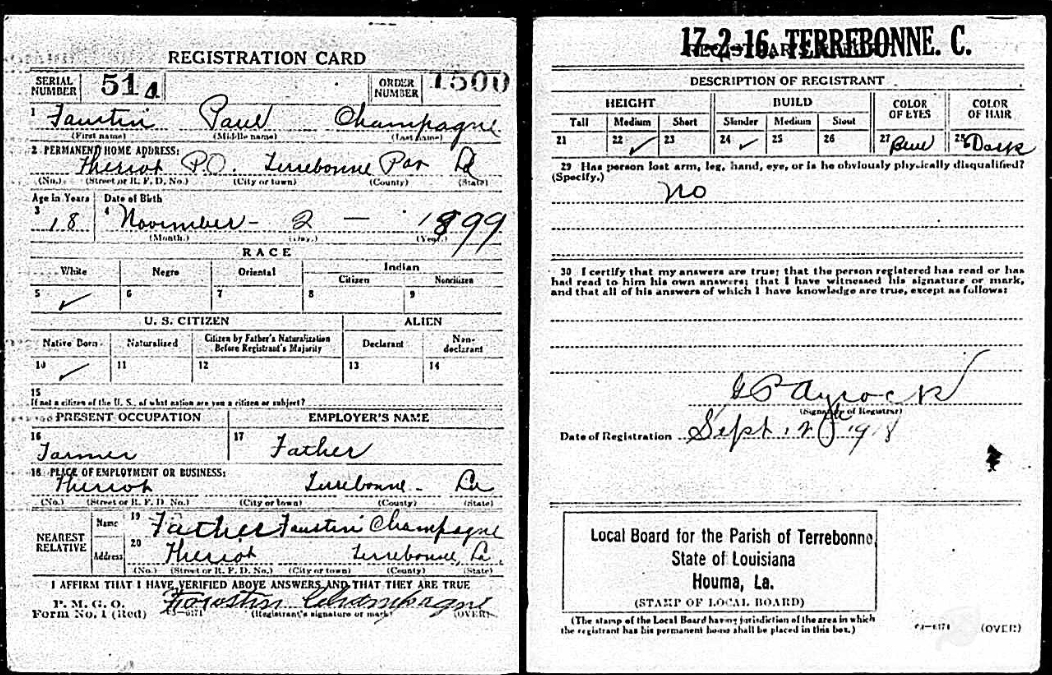 REGISTRATION CARD
SERIAL NUMBER 514 ORDER NUMBER 1500
1 Faustin Paul Champagne
(First name) (Middle name) (Last name)
2 PERMANENT HOME ADDRESS:
Theriot P.O. Terrebonne Par La
(No.) (Street or R. F. D. No.) (City or town) (County) (State)
Age in Years Date of Birth
3 18 4 November - 2 - 1899
(Month.) (Day.) (Year.)
RACE
White Negro Oriental Indian
Citizen Noncitizen
5 ✓ 6 7 8 9
U. S. CITIZEN ALIEN
Native Born Naturalized Citizen by Father's Naturalization Before Registrant's Majority Declarant Non-declarant
10 ✓ 11 12 13 14
15
If not a citizen of the U. S., of what nation are you a citizen or subject?
PRESENT OCCUPATION EMPLOYER'S NAME
16 Farmer 17 Father
18 PLACE OF EMPLOYMENT OR BUSINESS:
Theriot Terrebonne - La
(No.) (Street or R. F. D. No.) (City or town) (County) (State)
NEAREST RELATIVE Name 19 Father Faustin Champagne
Address 20 Theriot Terrebonne, La.
(No.) (Street or R. F. D. No.) (City or town) (County) (State)
I AFFIRM THAT I HAVE VERIFIED ABOVE ANSWERS AND THAT THEY ARE TRUE
P. M. G. O.
Form No. 1 (Red) Faustin Champagne
(Registrant's signature or mark) (OVER)
17-2-16. TERREBONNE. C.
DESCRIPTION OF REGISTRANT
HEIGHT BUILD COLOR OF EYES COLOR OF HAIR
Tall Medium Short Slender Medium Stout
21 22 ✓ 23 24 ✓ 25 26 27 Blue 28 Dark
29 Has person lost arm, leg, hand, eye, or is he obviously physically disqualified?
(Specify.) no
30 I certify that my answers are true; that the person registered has read or has
had read to him his own answers; that I have witnessed his signature or mark,
and that all of his answers of which I have knowledge are true, except as follows:
(Signature of Registrar)
Date of Registration Sept. 1918
Local Board for the Parish of Terrebonne,
State of Louisiana
Houma, La.
(STAMP OF LOCAL BOARD)
(The stamp of the Local Board having jurisdiction of the area in which
the registrant has his permanent home shall be placed in this box.)
03-6171 (OVER)